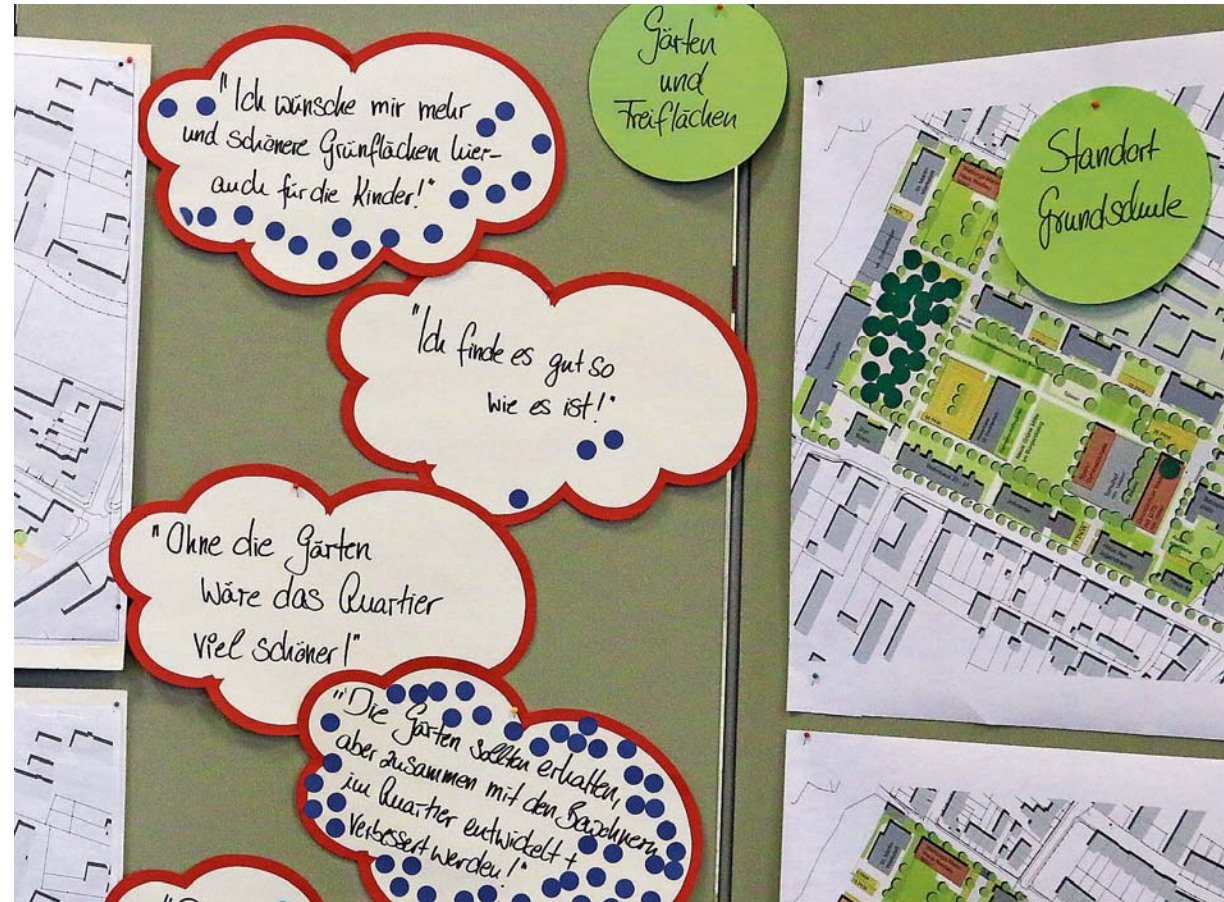 "Ich wünsche mir mehr
und schönere Grünflächen hier-
auch für die Kinder!"
Gärten
und
Freiflächen
Standort
Grundschule
"Ich finde es gut so
wie es ist!"
"Ohne die Gärten
wäre das Quartier
viel schöner!"
"Die Gärten sollten erhalten,
aber zusammen mit den Bewohnern
im Quartier entwickelt +
verbessert werden!"